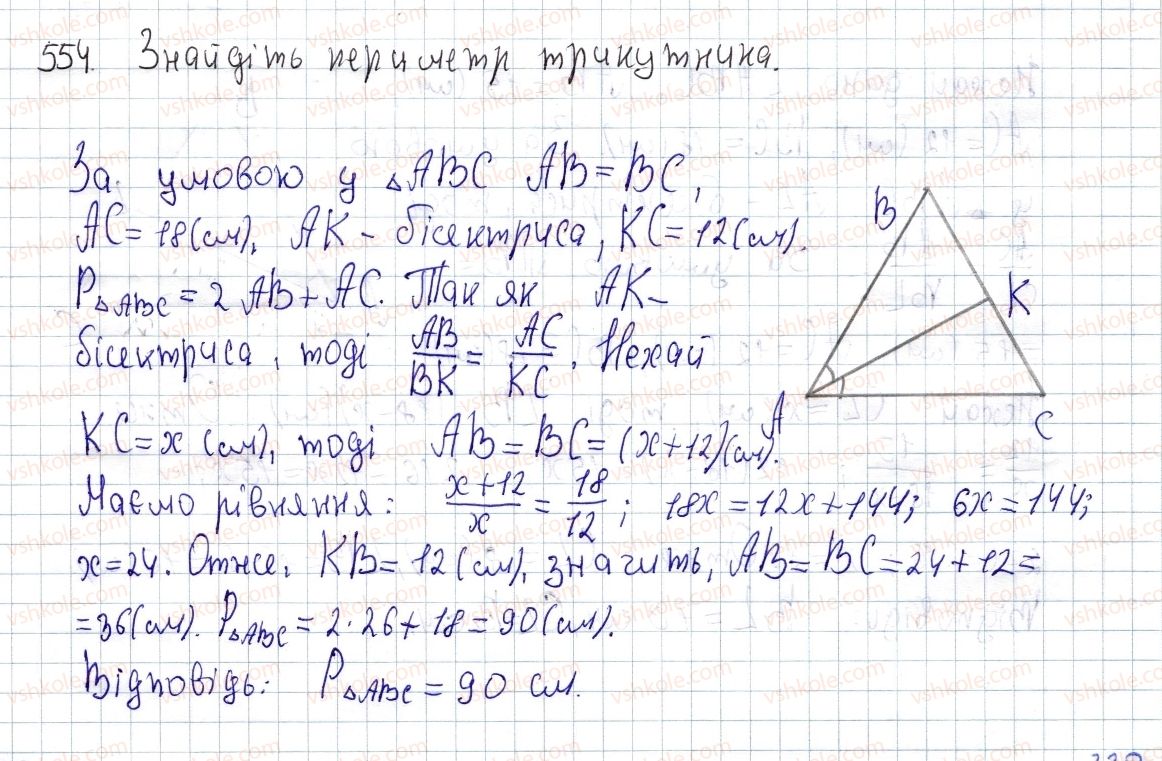 554. Знайдіть периметр трикутника.
За умовою у △ABC AB = BC,
AC = 18 (см), AK - бісектриса, KC = 12 (см).
P△ABC = 2 AB + AC. Так як AK -
бісектриса, тоді AB/BK = AC/KC. Нехай
KC = x (см), тоді AB = BC = (x + 12) (см).
Маємо рівняння: (x + 12)/x = 18/12; 18x = 12x + 144; 6x = 144;
x = 24. Отже, KB = 12 (см), значить, AB = BC = 24 + 12 =
= 36 (см). P△ABC = 2 · 26 + 18 = 90 (см).
Відповідь: P△ABC = 90 см.
B
K
A
C
vshkole.com